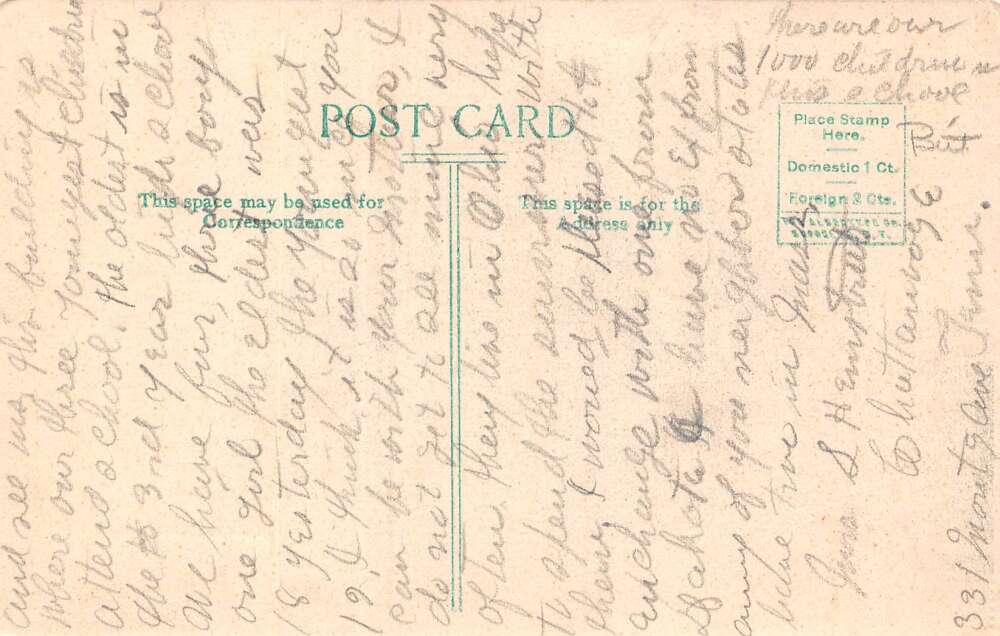 POST CARD
This space may be used for
Correspondence
This space is for the
Address only
Place Stamp
Here.
Domestic 1 Ct.
Foreign 2 Cts.
and see my this building is
where our three youngest children
attend school. the oldest is in
the 3rd year high school
We have four, three boys
one girl the eldest was
18 yesterday the youngest
12, I think it is so nice you
can be with your sister, I
do not get to see mine very
often they live in Ohio, hope
to spend the summer with
them, I would be pleased to
exchange with one from
Dakota I have no 21 from
any of your neighbor states
believe me in
Mrs S Hempstreet
Chattanooga
Tenn.
331 Mount Ave
There are over
1000 children in
this school
But